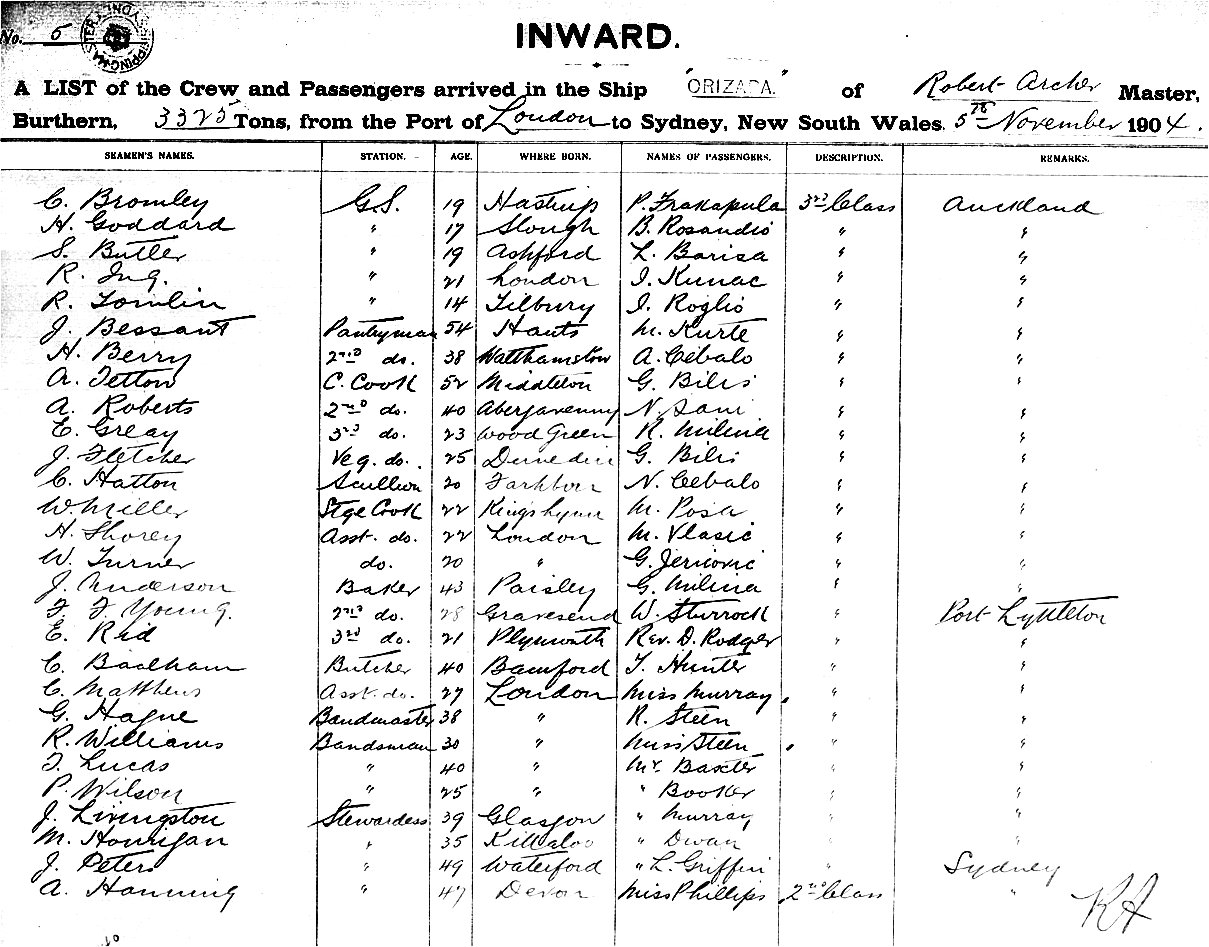 No. 5
INWARD.
A LIST of the Crew and Passengers arrived in the Ship "ORIZABA." of Robert Archer Master,
Burthern, 3325 Tons, from the Port of London to Sydney, New South Wales. 5th November 1904.
SEAMEN'S NAMES. STATION. AGE. WHERE BORN. NAMES OF PASSENGERS. DESCRIPTION. REMARKS.
C. Bromley G.S. 19 P. Frakapula 3rd Class Auckland
H. Goddard " 17 Slough B. Rosandio " "
S. Butler " 19 Ashford L. Barisa " "
R. Ing. " 21 London I. Kunac " "
R. Tomlin " 14 Tilbury I. Roglio " "
J. Bessant Pantryman 54 Hants M. Kurte " "
H. Berry 2nd do. 38 Walthamstow A. Cebalo " "
A. Tetton C. Cook 52 Middleton G. Bilis " "
A. Roberts 2nd do. 40 Abergavenny N. Sani " "
E. Greay 3rd do. 23 Wood Green R. Milina " "
J. Fletcher Veg. do. 25 Dunedin G. Bilis " "
C. Hatton Scullion 20 N. Cebalo " "
W. Miller Stge Cook 22 Kings Lynn M. Posa " "
H. Shorey Asst. do. 22 London M. Vlasic " "
W. Turner do. 20 " G. Jericovic " "
J. Anderson Baker 43 Paisley G. Milina " "
F. F. Young. 2nd do. 28 Gravesend W. Sturrock " Port Lyttleton
E. Reid 3rd do. 21 Plymouth Rev. D. Rodger " "
C. Baalham Butcher 40 Bamford T. Hunter " "
C. Matthews Asst. do. 27 London Miss Murray " "
G. Hague Bandmaster 38 " R. Steen " "
R. Williams Bandsman 30 " Miss Steen " "
T. Lucas " 40 " Mr. Baxter " "
P. Wilson " 25 " " Booker " "
J. Livingston Stewardess 39 Glasgow " Murray " "
M. Hourigan " 35 Killaloo " Dwan " "
J. Peters " 49 Waterford " L. Griffin " Sydney
A. Hanning " 47 Devon Miss Phillips 2nd Class "
RA